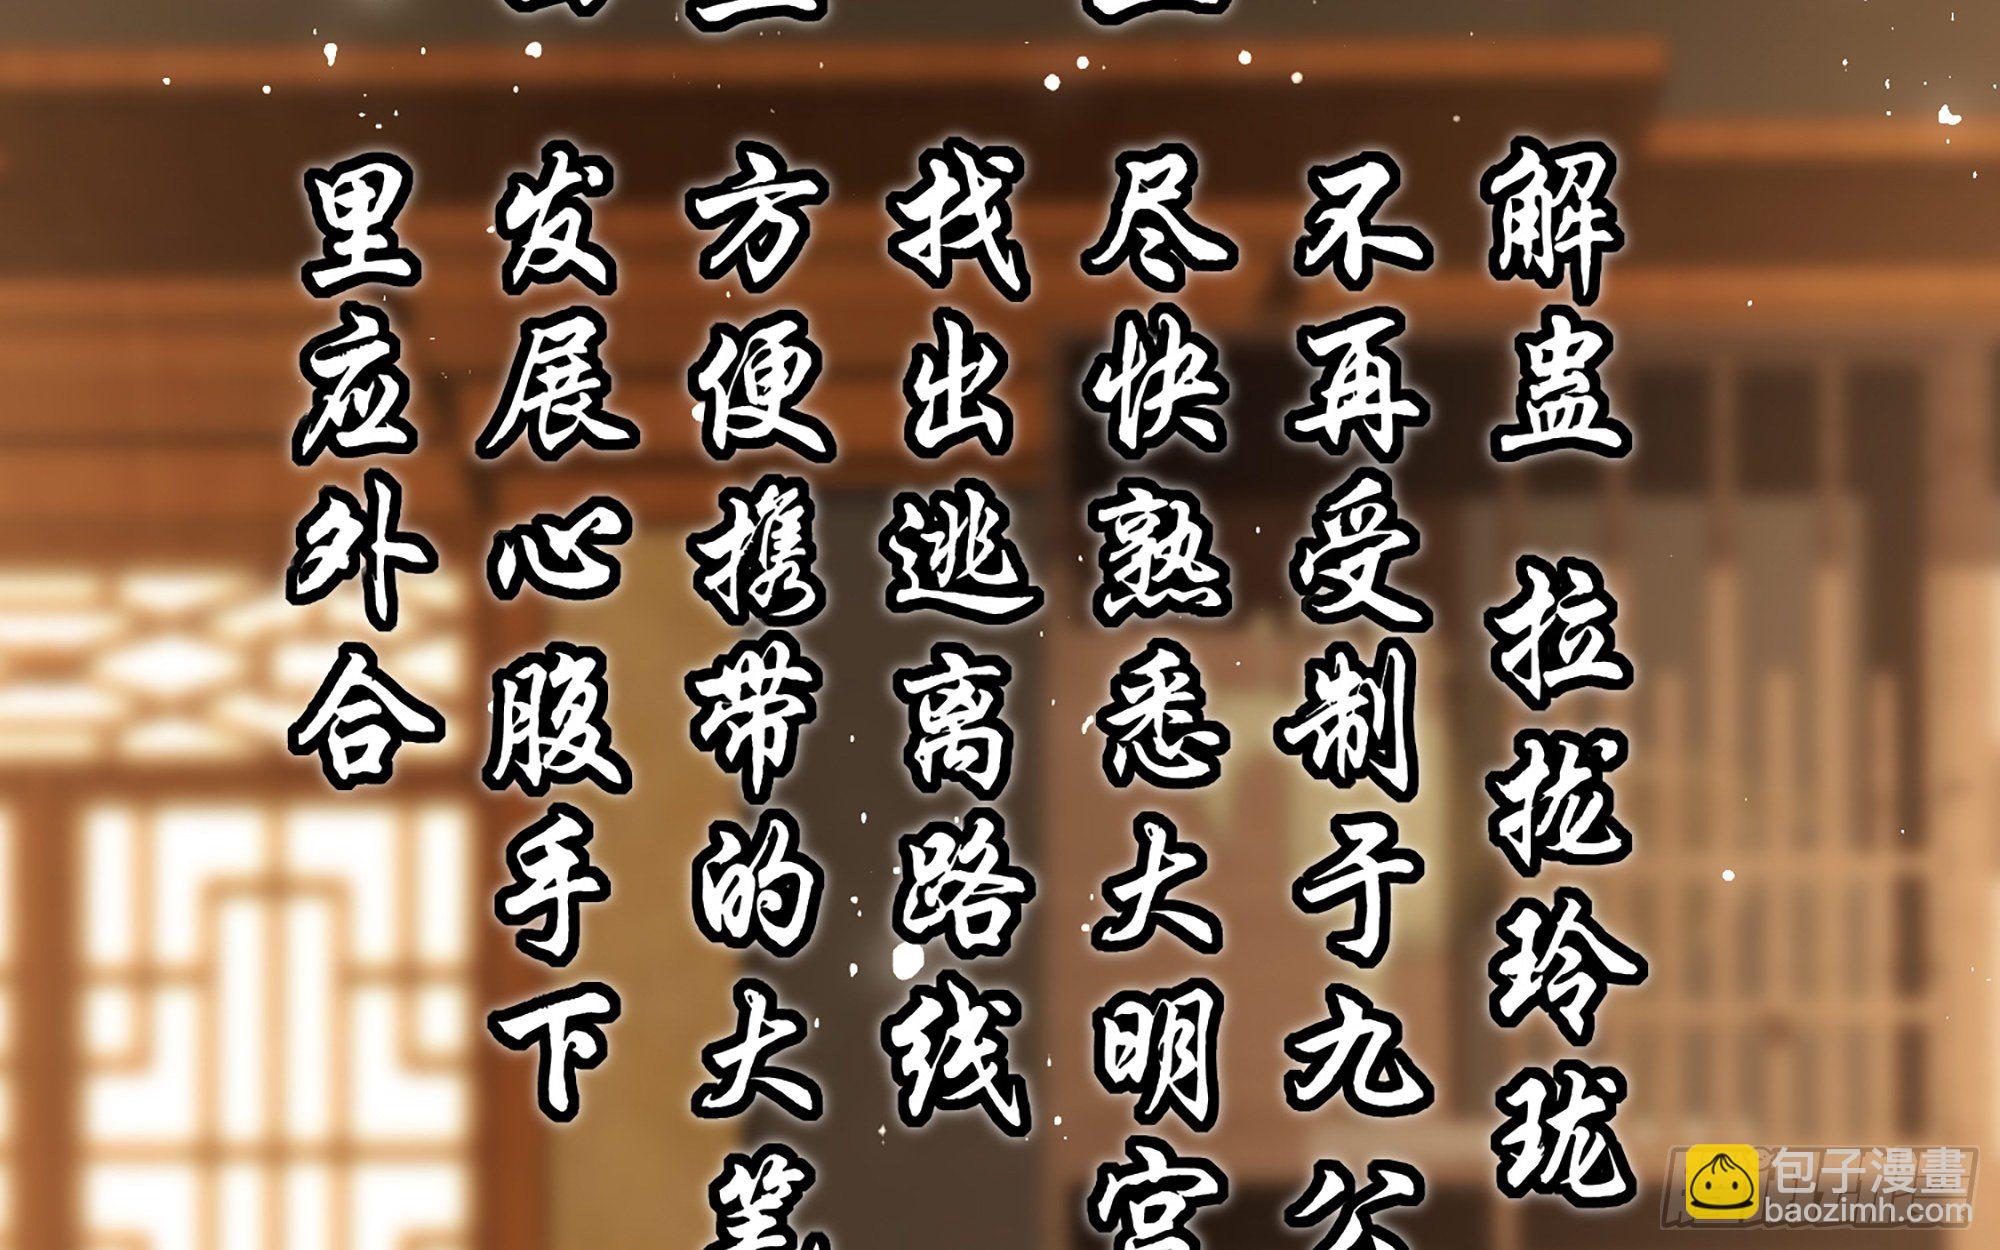 解蛊 拉拢玲珑
不再受制于九公
尽快熟悉大明宫
找出逃离路线
方便携带的大笔
发展心腹手下
里应外合
包子漫畫
baozimh.com